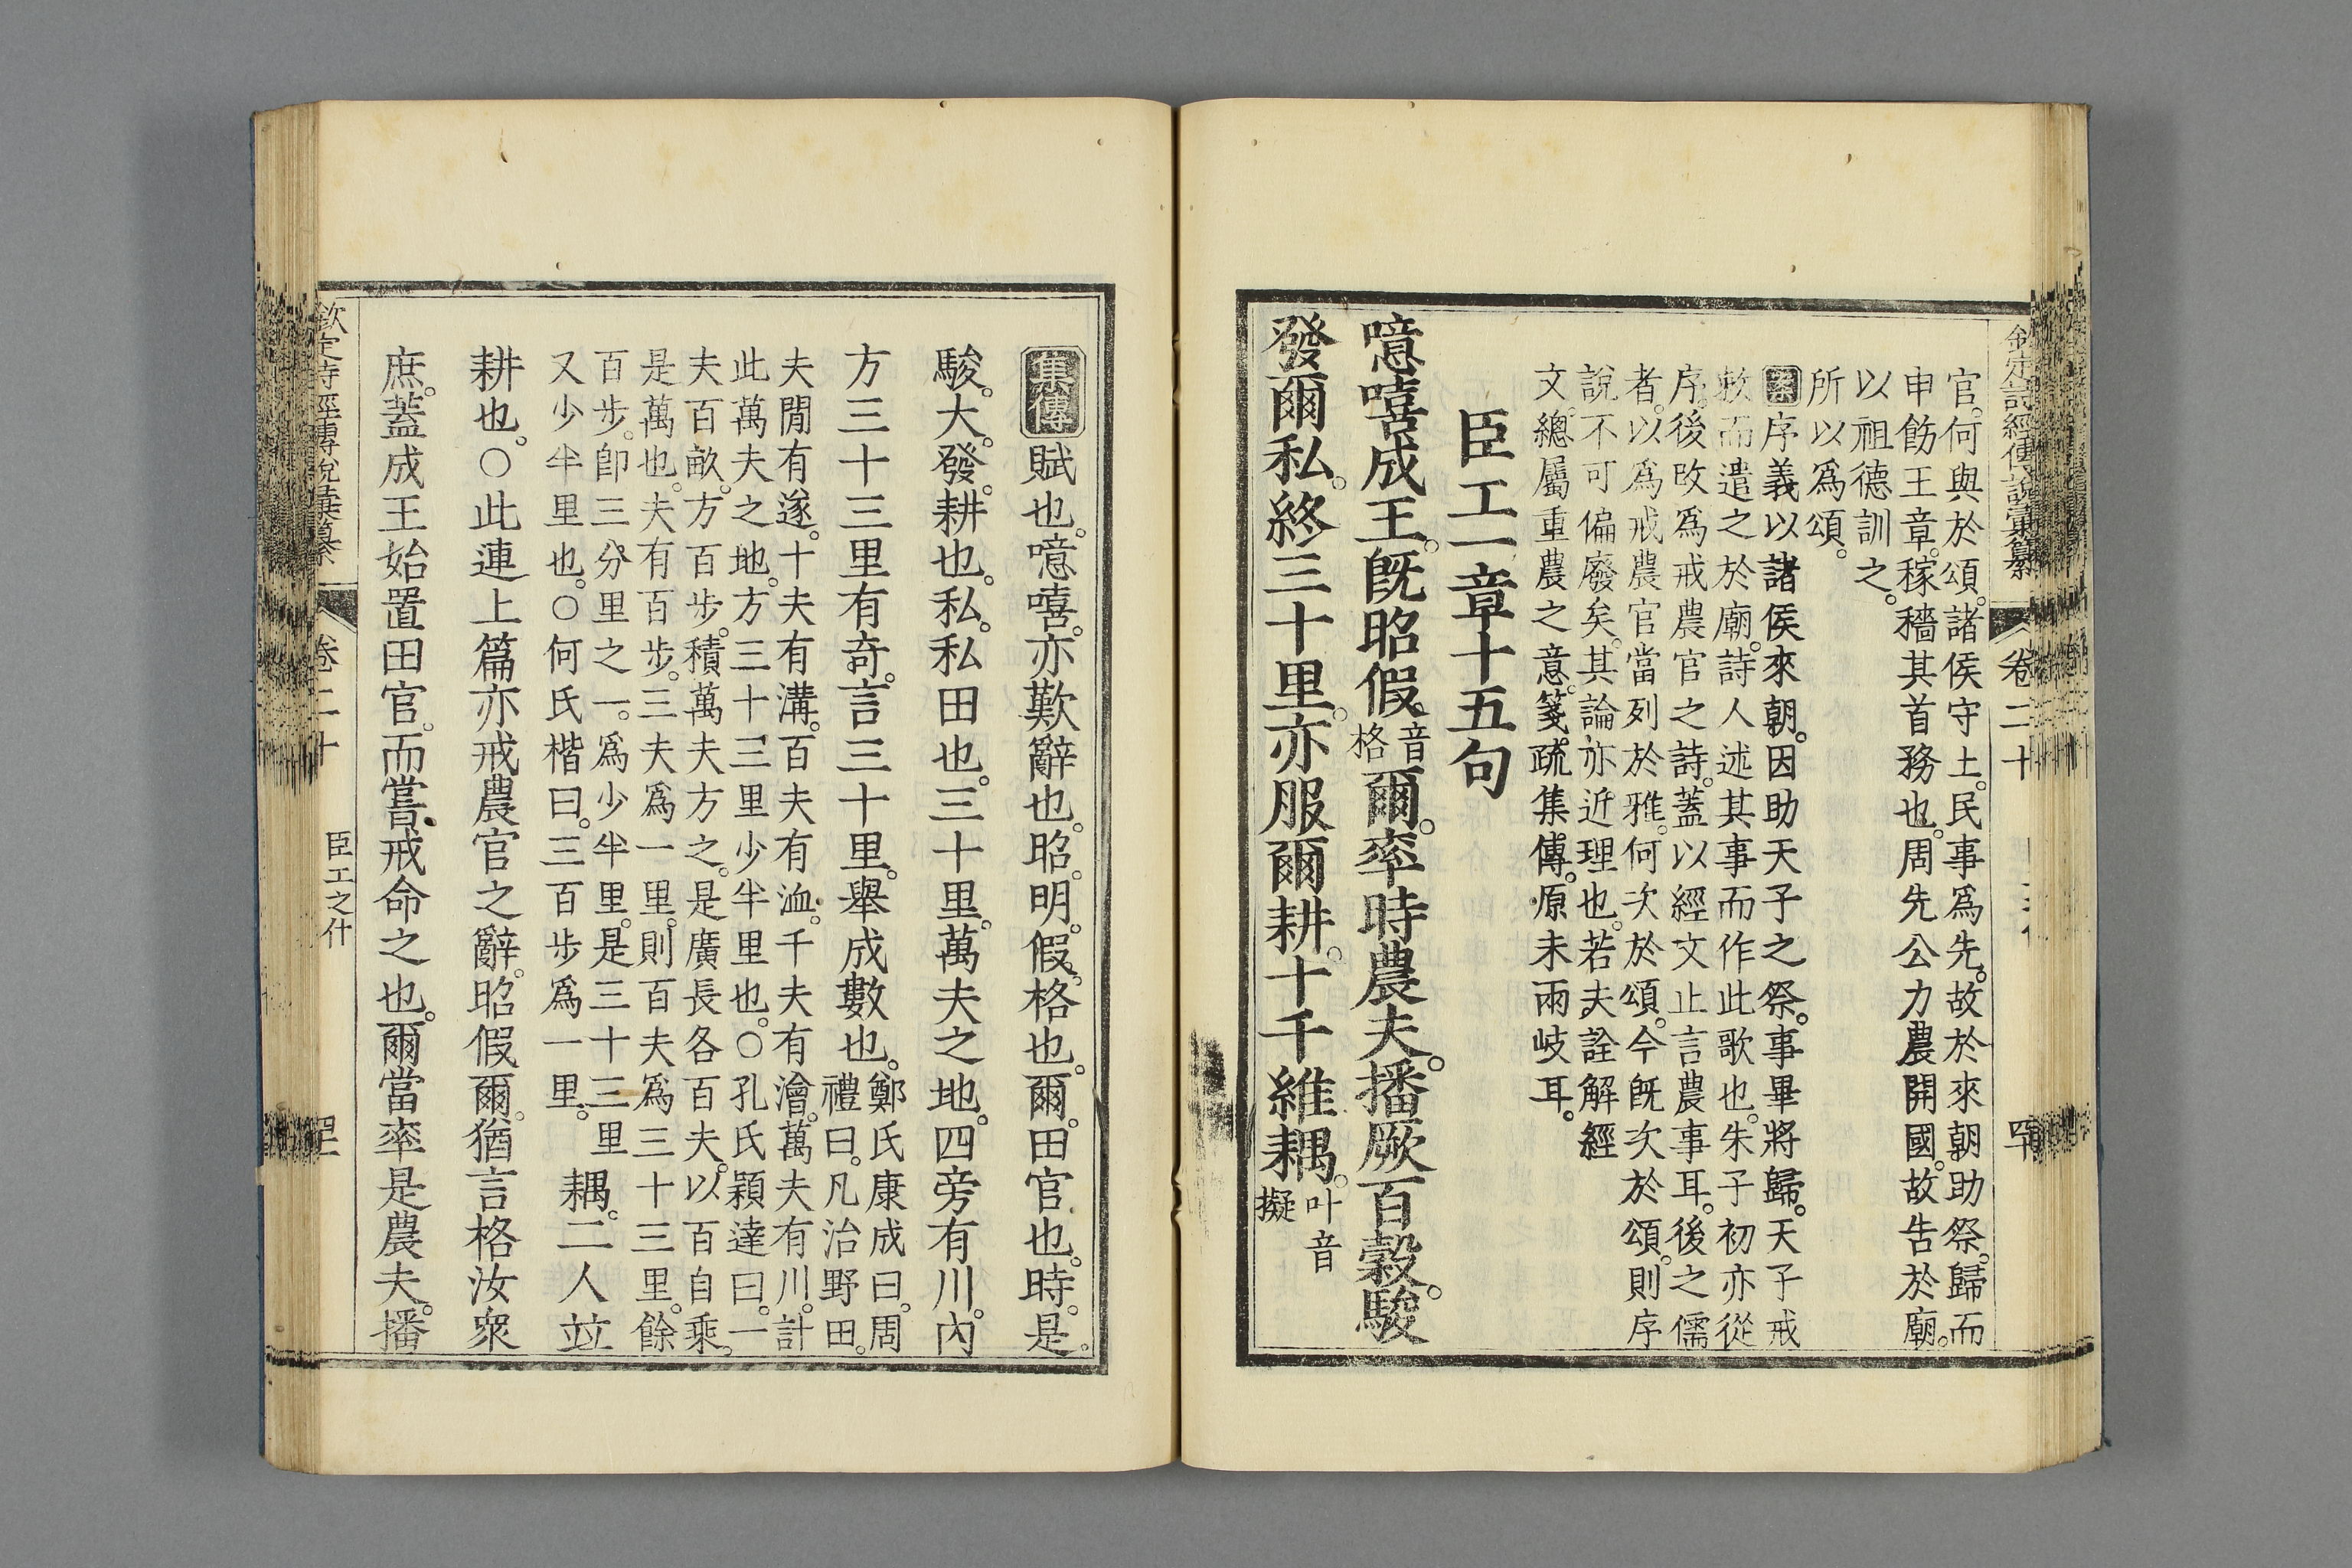 欽定詩經傳說彙纂
卷二十
官。何與於頌。諸侯守土。民事爲先。故於來朝助祭。歸而
申飭王章。稼穡其首務也。周先公力農開國。故告於廟。
以祖德訓之。
所以爲頌。
案序義以諸侯來朝。因助天子之祭。事畢將歸。天子戒
敕而遣之於廟。詩人述其事而作此歌也。朱子初亦從
序。後改爲戒農官之詩。蓋以經文止言農事耳。後之儒
者。以爲戒農官當列於雅。何次於頌。今旣次於頌。則序
說不可偏廢矣。其論亦近理也。若夫詮解經
文。總屬重農之意。箋疏集傳。原未兩岐耳。
臣工一章十五句
噫嘻成王。旣昭假音格爾。率時農夫。播厥百穀。駿
發爾私。終三十里。亦服爾耕。十千維耦。叶音擬
集傳賦也。噫嘻。亦歎辭也。昭。明。假。格也。爾。田官也。時。是。
駿。大。發。耕也。私。私田也。三十里。萬夫之地。四旁有川。內
方三十三里有奇。言三十里。舉成數也。鄭氏康成曰。周
禮曰。凡治野田。
夫閒有遂。十夫有溝。百夫有洫。千夫有澮。萬夫有川。計
此萬夫之地。方三十三里少半里也。○孔氏穎達曰。一
夫百畝。方百步。積萬夫方之。是廣長各百夫。以百自乘。
是萬也。夫有百步。三夫爲一里。則百夫爲三十三里。餘
百步。卽三分里之一。爲少半里。是三十三里
又少半里也。○何氏楷曰。三百步爲一里。
耦。二人竝
耕也。○此連上篇亦戒農官之辭。昭假爾。猶言格汝衆
庶。蓋成王始置田官。而嘗戒命之也。爾當率是農夫。播
欽定詩經傳說彙纂
卷二十
臣工之什